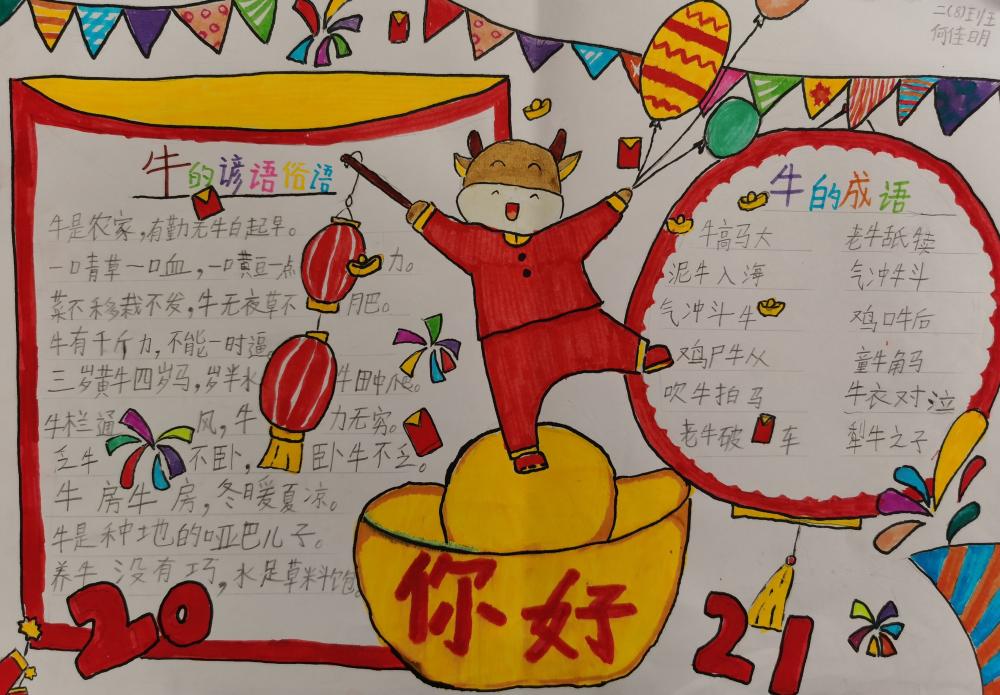 二(8)班
何佳明
牛的谚语俗语
牛是农家,有勤无牛白起早。
一口青草一口血,一口黄豆一点力。
菜不移栽不发,牛无夜草不月巴。
牛有千斤力,不能一时逼
三岁黄牛四岁马,岁半水牛田中爬。
牛栏通风,牛力无穷。
乏牛不卧,卧牛不乏。
牛房牛房,冬暖夏凉。
牛是种地的哑巴儿子。
养牛没有巧,水足草料饱
牛的成语
牛高马大 老牛舐犊
泥牛入海 气冲牛斗
气冲斗牛 鸡口牛后
鸡尸牛从 童牛角马
吹牛拍马 牛衣对泣
老牛破车 犁牛之子
你好
20 21